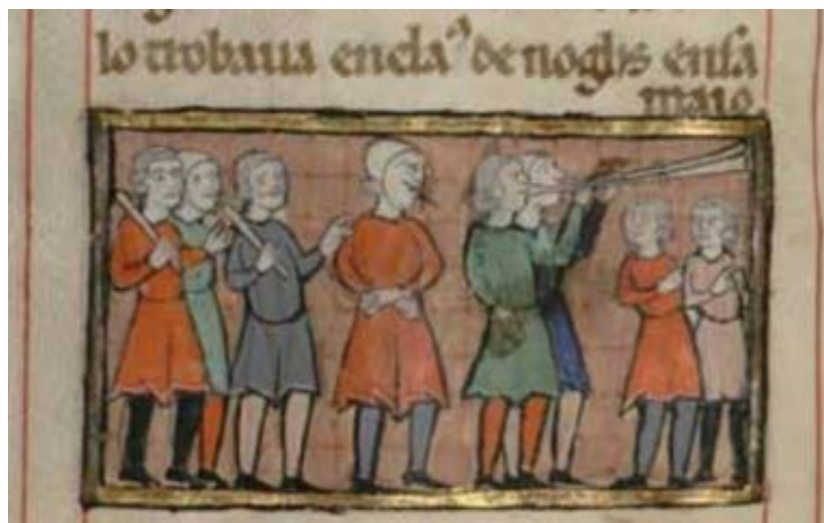 lo trobaua encla⁹ de noghs ensa
maio.